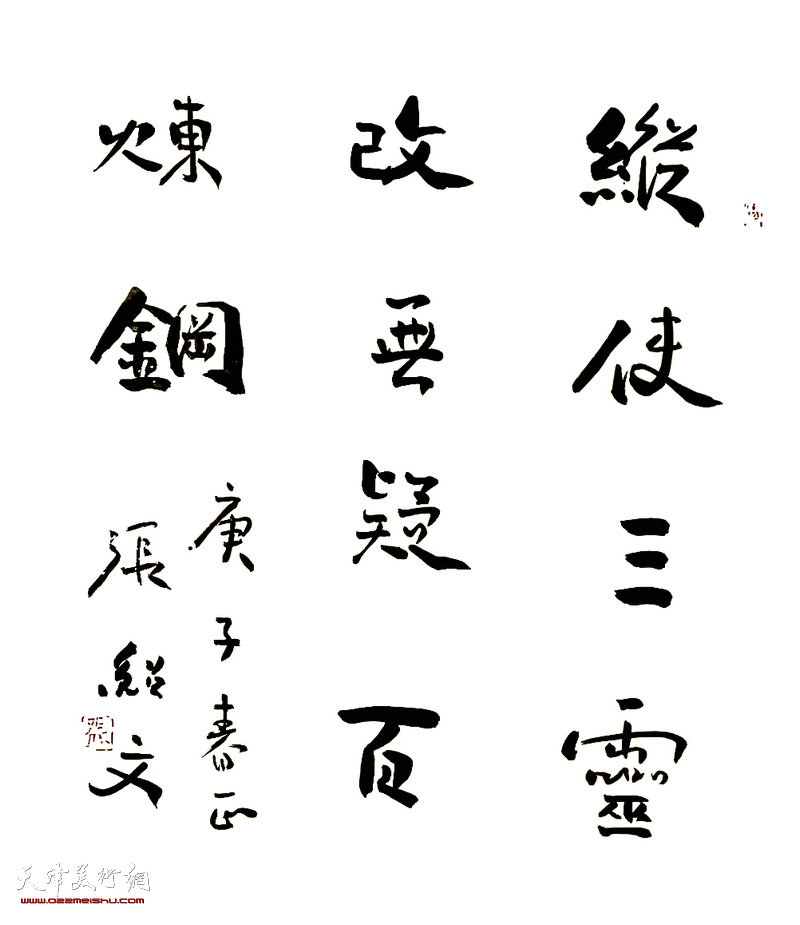 縱使三靈
改無疑百
煉鋼
庚子春正
張紹文
天津美術網
www.022meishu.com